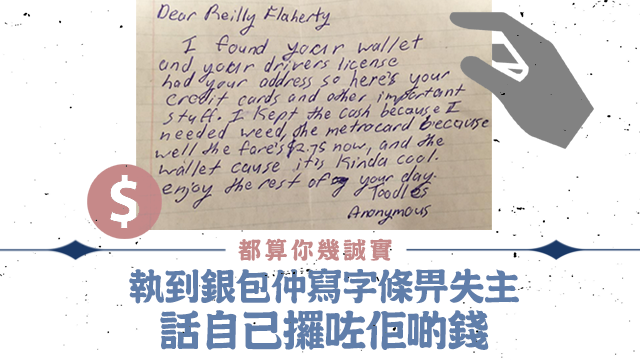 Dear Reilly Flaherty
I found your wallet
and your drivers license
had your address so here's your
credit cards and other important
stuff. I kept the cash because I
needed weed, the metrocard because
well the fare's $2.75 now, and the
wallet cause it's kinda cool.
enjoy the rest of your day.
Toodles
Anonymous
$
都算你幾誠實
執到銀包仲寫字條畀失主
話自己攞咗佢啲錢